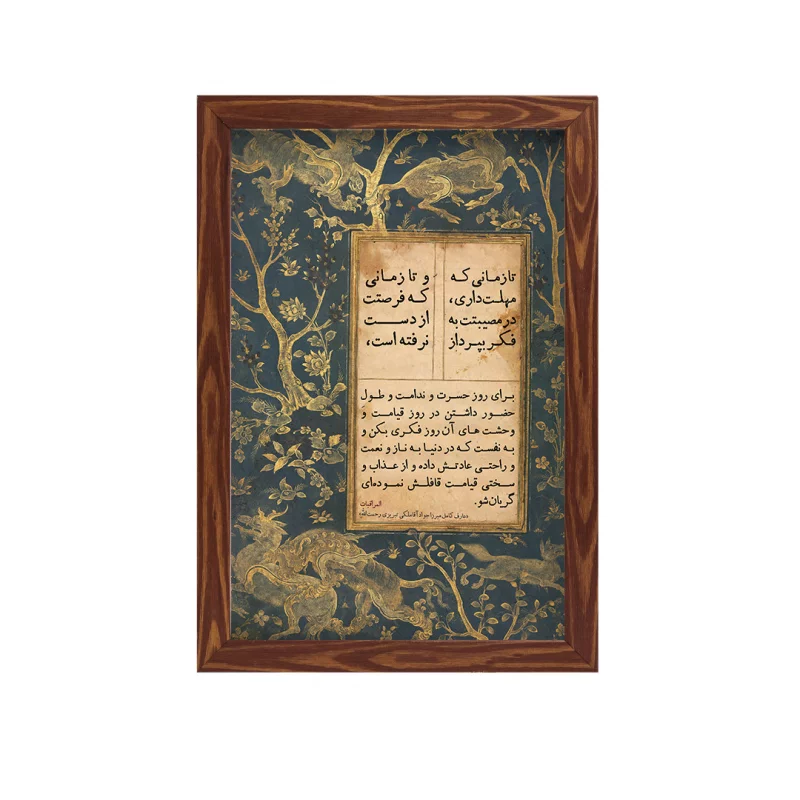 تا زمانی که
مهلت داری،
در مصیبتت به
فکر بپرداز
و تا زمانی
که فرصتت
از دست
نرفته است،
برای روز حسرت و ندامت و طول
حضور داشتن در روز قیامت و
وحشت های آن روز فکری بکن و
به نفست که در دنیا به ناز و نعمت
و راحتی عادتش داده و از عذاب و
سختی قیامت قافلش نموده‌ای
گریان شو.
المراقبات
عارف کامل میرزا جواد آقا ملکی تبریزی